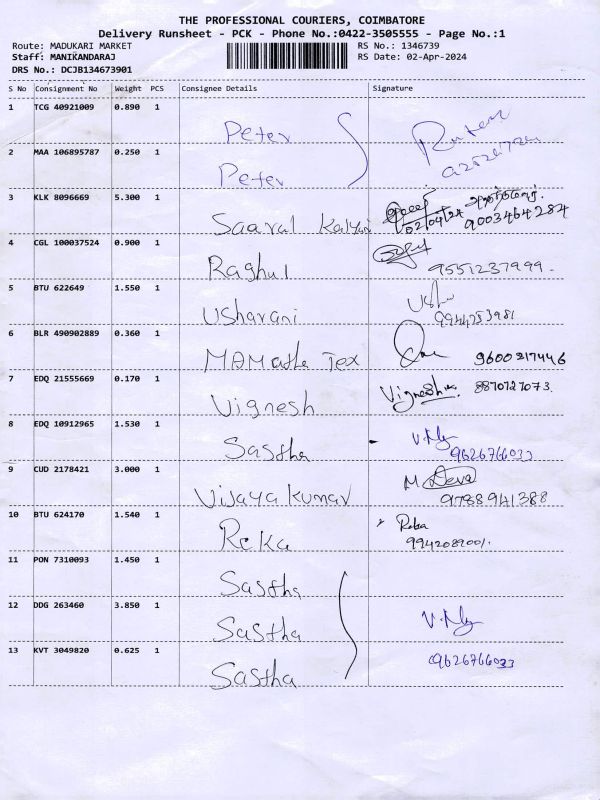 THE PROFESSIONAL COURIERS, COIMBATORE
Delivery Runsheet - PCK - Phone No.:0422-3505555 - Page No.:1
Route: MADUKARI MARKET RS No.: 1346739
Staff: MANIKANDARAJ RS Date: 02-Apr-2024
DRS No.: DCJB134673901
S No Consignment No Weight PCS Consignee Details Signature
1 TCG 40921009 0.890 1 Peter
2 MAA 106895787 0.250 1 Peter
3 KLK 8096669 5.300 1 Saaral 02/04/24 9003464284
4 CGL 100037524 0.900 1 Raghul 9551237999.
5 BTU 622649 1.550 1 Usharani 9944253981
6 BLR 490902889 0.360 1 Tex 9600217446
7 EDQ 21555669 0.170 1 Vignesh Vignesh 8870727073.
8 EDQ 10912965 1.530 1 Sastha 9626766033
9 CUD 2178421 3.000 1 Vijaya Kumar M Deva 9788941388
10 BTU 624170 1.540 1 Reka Reka 9942089001.
11 PON 7310093 1.450 1 Sastha
12 DDG 263460 3.850 1 Sastha
13 KVT 3049820 0.625 1 Sastha 9626766033